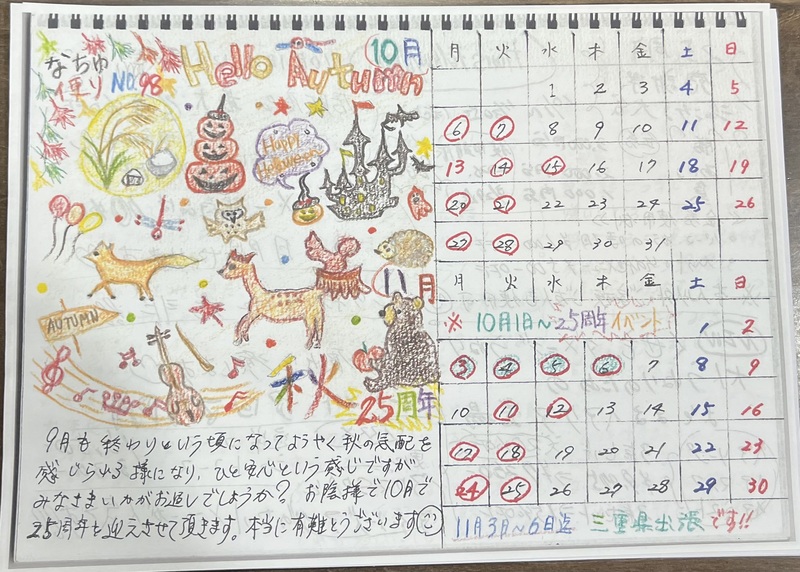 なちゅ
便り NO.98
Hello Autumn
10月
Happy
Halloween
11月
AUTUMN
秋
25周年
9月も終わりという頃になってようやく秋の気配を
感じられる様になり、ひと安心という感じですが
みなさまいかがお過しでしょうか? お陰様で10月で
25周年を迎えさせて頂きます。本当に有難とうございます
月 火 水 木 金 土 日
1 2 3 4 5
6 7 8 9 10 11 12
13 14 15 16 17 18 19
20 21 22 23 24 25 26
27 28 29 30 31
月 火 水 木 金 土 日
※ 10月1日〜25周年イベント 1 2
3 4 5 6 7 8 9
10 11 12 13 14 15 16
17 18 19 20 21 22 23
24 25 26 27 28 29 30
11月3日〜6日迄 三重県出張です!!